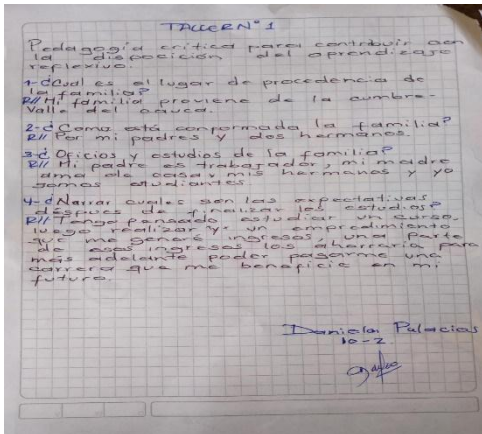 TALLER N° 1
Pedagogía crítica para contribuir con
la disposición del aprendizaje
reflexivo.
1-¿Cual es el lugar de procedencia de
la familia?
R// Mi familia proviene de la cumbre-
Valle del cauca.
2-¿Como está conformada la familia?
R// Por mi padres y dos hermanos.
3-¿Oficios y estudios de la familia?
R// Mi padre es trabajador, mi madre
ama de casa y mis hermanos y yo
somos estudiantes.
4-¿Narrar cuales son las expectativas
después de finalizar los estudios?
R// Tengo pensado estudiar un curso,
luego realizar y un empredimiento
que me genere ingresos, una parte
de esos ingresos los ahorraria para
más adelante poder pagarme una
carrera que me beneficie en mi
futuro.
Daniela Palacios
10-2